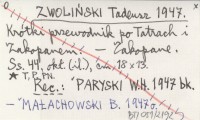 ZWOLIŃSKI Tadeusz 1947.
Krótki przewodnik po Tatrach i
Zakopanem. — Zakopane.
Ss. 44, okt. (il.), 8m, 18 x 13.
★ T.P.N.
Rec.: PARYSKI W.H. 1947 bk.
- MAŁACHOWSKI B. 1947a.